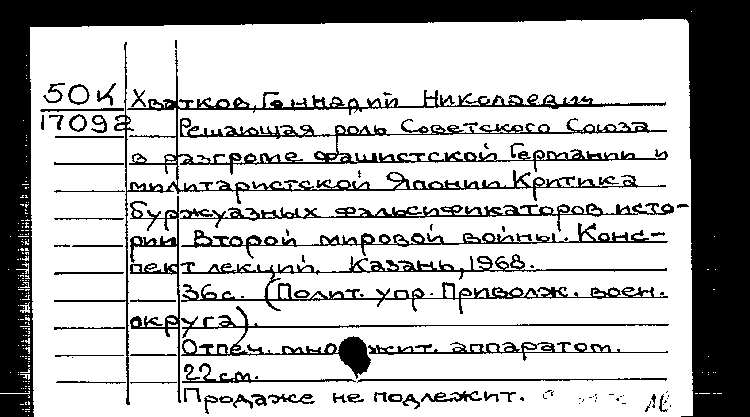 50К Хватков, Геннадий Николаевич
17092 Решающая роль Советского Союза
в разгроме фашистской Германии и
милитаристской Японии. Критика
буржуазных фальсификаторов исто-
рии Второй мировой войны. Конс-
пект лекций. Казань, 1968.
36с. (Полит. упр. Приволж. воен.
округа).
Отпеч. множит. аппаратом.
22см.
Продаже не подлежит.